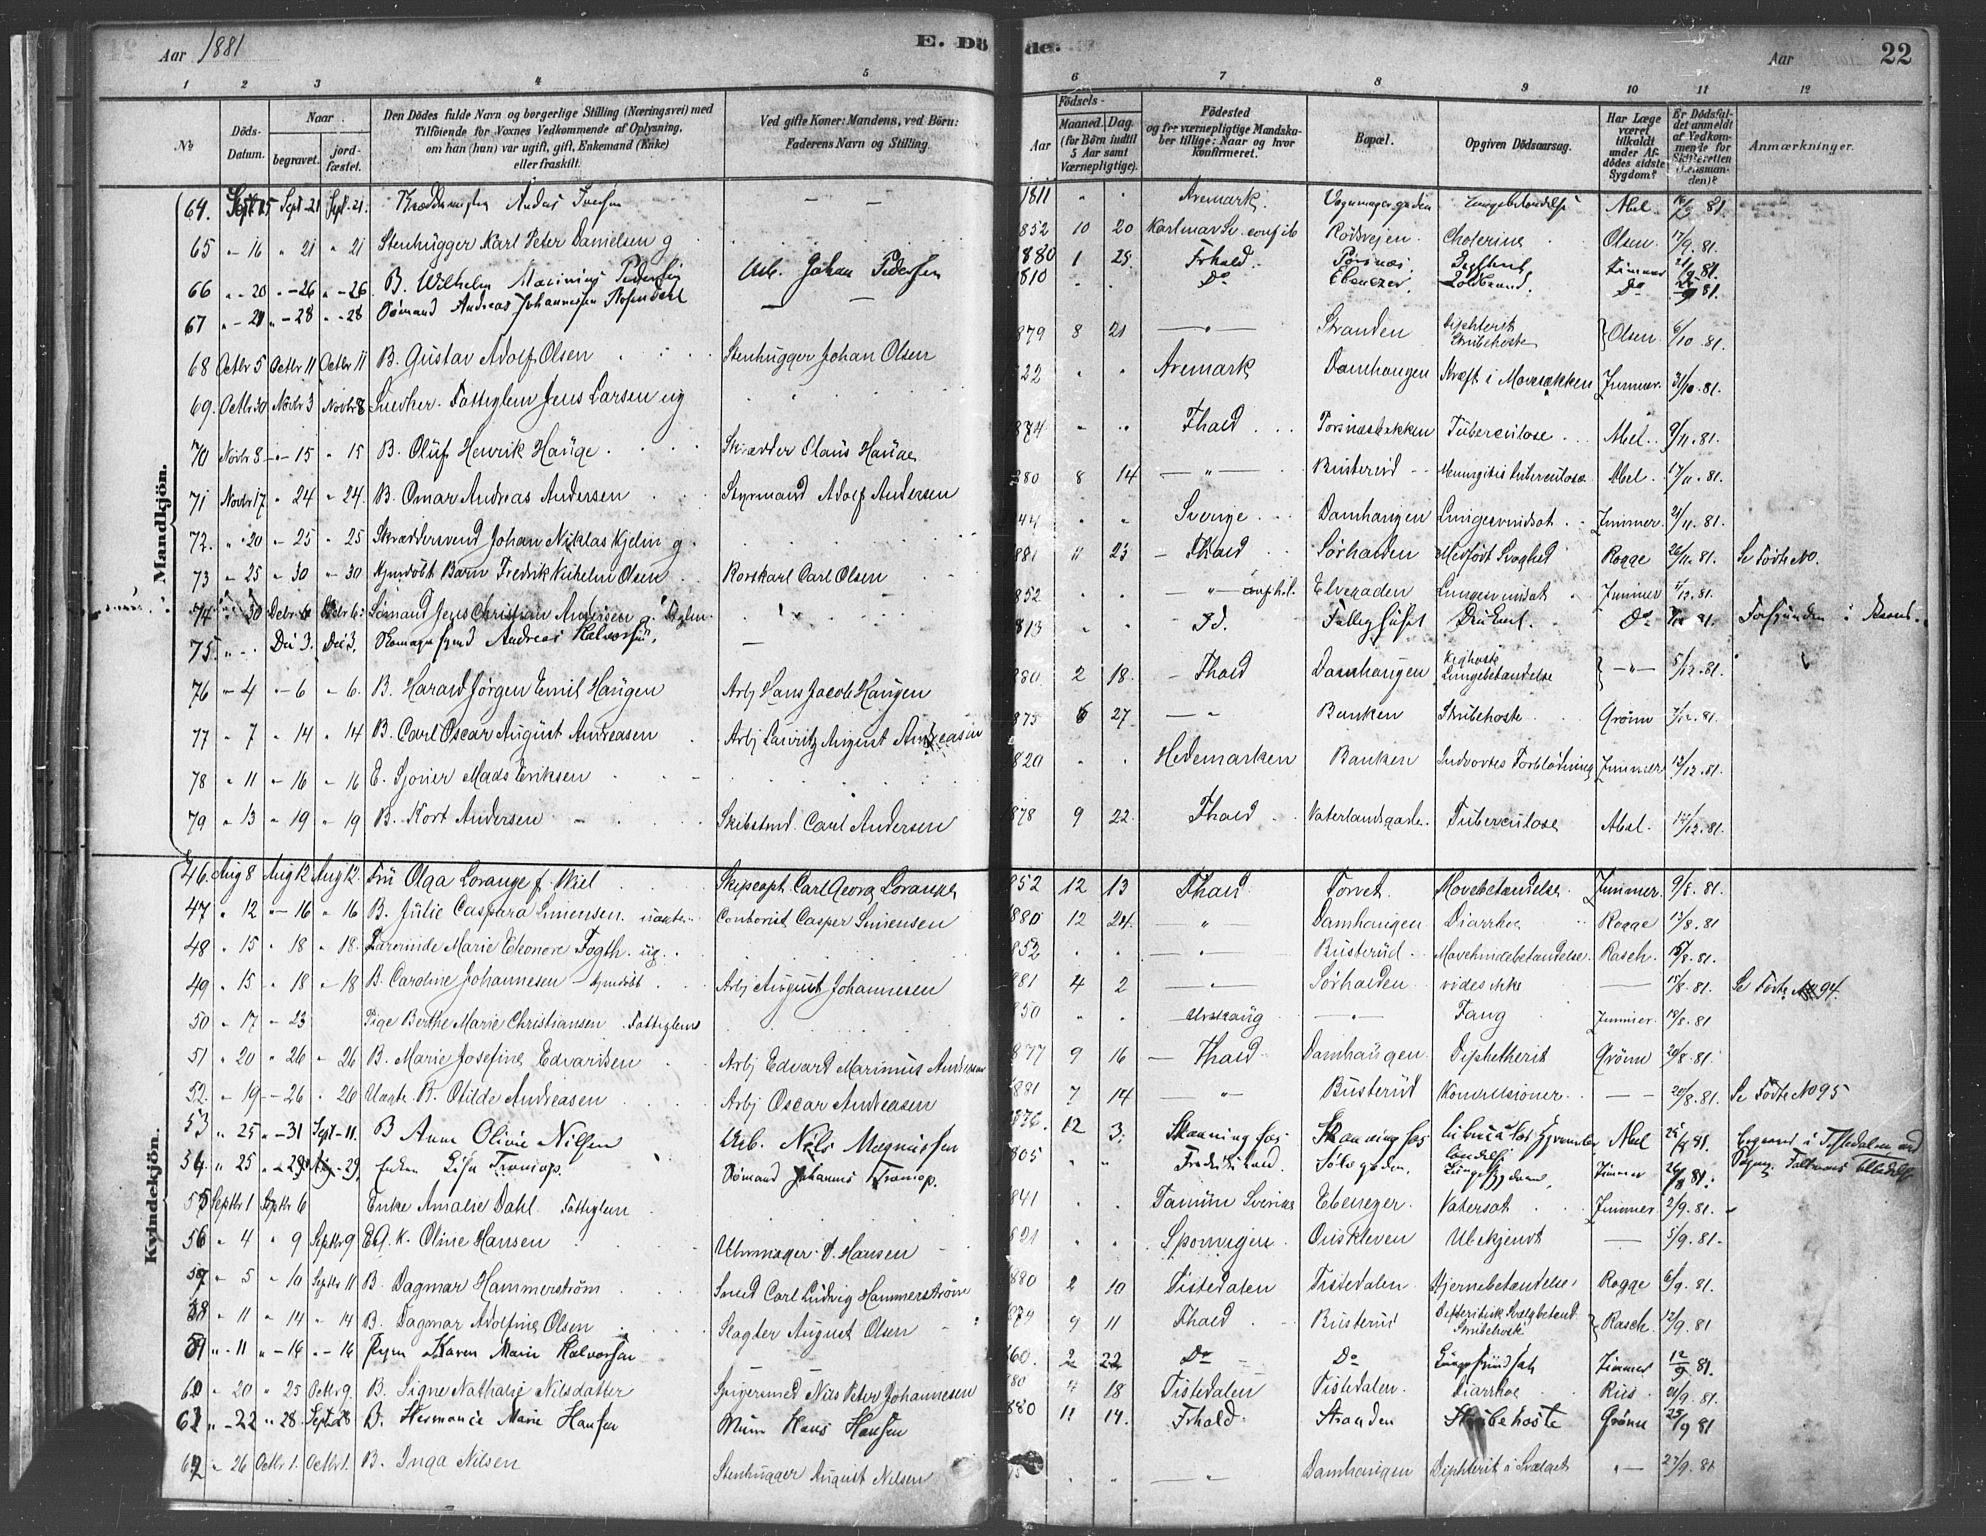 Aar 1881 E. Döde. Aar 22
1 2 3 4 5 6 7 8 9 10 11 12
No
Döds-Datum.
Naar
begravet.
jord-fæstet.
Den Dödes fulde Navn og borgerlige Stilling (Næringsvei) med
Tilföiende for Voxnes Vedkommende af Oplysning,
om han (hun) var ugift, gift, Enkemand (Enke)
eller fraskilt.
Ved gifte Koner: Mandens, ved Börn:
Faderens Navn og Stilling.
Födsels-
Aar
Maaned. Dag.
(for Börn indtil
5 Aar samt
Værnepligtige).
Födested
og for værnepligtige Mandska-
ber tillige: Naar og hvor
konfirmeret.
Bopæl.
Opgiven Dödsaarsag.
Har Læge
været
tilkaldt
under Af-
dödes sidste
Sygdom?
Er Dödsfal-
det anmeldt
af Vedkom-
mende for
Skifteretten
(Lensman-
den)?
Anmærkninger.
Mandkjön.
64. Sept 15 Sept 21 Sept. 21. Anders Iversen — — 1811 " " Aremark. Vognmagergaden Lungebetændelse Abel 81.
65 " 16 " 21 " 21 Stenhugger Karl Peter Danielsen g. 1852 10 20 Rödsvejen Cholerine Olsen. 17/9. 81.
66 " 20 " 26 " 26. B. Wilhelm Marinius Pedersen Arb. Johan Pedersen 1880 1 29. Frhald. Zimmer 21/9. 81.
67 " 21 " 28 " 28 Sömand Andreas Johannesen Rosendahl — — 1810 Do Ebenezer. Koldbrand. Do 81.
68 Octbr 5 Octbr 11 Octbr 11 B. Gustav Adolf Olsen Stenhugger Johan Olsen 1879 8 21 — " — Stranden Diphterit Strubehoste Olsen. 6/10. 81.
69. Octbr 30 Novbr 3 Novbr 8 Snedker. Fattiglem Jens Larsen ug 22 " " Aremark Damhaugen Kræft i Mavesækken Zimmer. 31/10. 81.
70 Novbr 8 " 15 " 15 B. Oluf Henrik Hauge Skrædder Claus Hauge 1874 " " Fhald Torsnæsbakken Tuberculose Abel. 9/11. 81.
71 Novbr 17 " 24 " 24. B. Omar Andreas Andersen Styrmand Adolf Andersen 1880 8 14 — " — Busterud Meningitis tuberculosa Abel. 17/11. 81.
72. " 20 " 25 " 25 Skræddersvend Johan Niklas Hjelm g. 44 " " Sverige Damhaugen Lungesvindsot Zimmer. 21/11. 81.
73 " 25 " 30 " 30 Hjemdöbt Barn Fredrik Vilhelm Olsen Korskarl Carl Olsen 1881 11 23 Fhald Sörhalden Medfödt Svaghed Rogge 26/11. 81. Se Födte No.
74 " 30 Debr. 6 Debr 6. Sömand Jens Christian Andersen g. 1852 " " Elvegaden Lungesvindsot Zimmer 1/12. 81.
75. " . Dec 3. Dec 3. Andreas Halvorsen. — 1813 Id. Druknet. Do 81. Forsvunden i
76 " 4 " 6 " 6. B. Harald Jörgen Emil Haugen Arbj Hans Jacob Haugen 1880 2 18. Fhald Damhaugen Kighoste Lungebetændelse — " — 5/12. 81.
77 " 7 " 14 " 14 B. Carl Oscar August Andreasen Arbj Lauritz August Andreasen 1875 6 27. — " Banken Strubehoste Grönn 7/12. 81.
78 " 11 " 16 " 16 E. Sjöner Mads Eriksen 1820 " " Hedemarken Banken Indvortes Forblödning Zimmer 12/12. 81.
79 " 13 " 19 " 19 B. Kort Andersen Skibstmd. Carl Andersen 1878 9 22. Fhald Vaterlandsgade. Tuberculose Abel. 14/12. 81.
Kvindekjön.
46. Aug 8 Aug 12 Aug 12. Fru Olga Lorange f. Wiel Skipscapt Carl Georg Lorange 1852 12 13 Fhald Torvet. Mavebetændelse. Zimmer. 9/8. 81.
47 " 12 " 16 " 16 B. Julie Caspara Simensen. uægte Contorist Casper Simensen 1880 12 24. — " — Damhaugen Diarrhoe Rogge 12/8. 81
48 " 15 " 18 " 18. Lærerinde Marie Eleonore Fogth. ug. 1852 " " — " — Busterud. Mavehindebetændelse. Rasch. 15/8. 81.
49 " 15 " 18 " 18 B. Caroline Johannesen hjemdöbt Arbj August Johannesen 1881 4 2 — " — Sörhalden vides ikke — 15/8. 81. Se Födte No 94.
50 " 17 " 23 Pige Berthe Marie Christiansen Fattiglem 1850 " " Urskaug — " — Tang Zimmer 18/8. 81
51 " 20 " 26 " 26 B. Marie Josefine Edvardsen Arbj Edvard Marinius Andersen 1877 9 16 Fhald Damhaugen. Diphtherit Grönn 20/8. 81
52. " 19 " 26 " 26 Uægte B. Otilde Andreasen Arbj Oscar Andreasen 1881 7 14 — " — Busterud Konvulsioner — — 20/8. 81. Se Födte No 95
53 " 25 " 31 Sept 11. B Anne Olivie Nilsen Arb. Nils Magnussen 1876. 12 3. Skanningfos Skanningfos Abel 81. i Tistedalen
54. " 25 " 29 29. Enken Lisa Tronsop. Sömand Johannes Tronsop. 1805 " " Fredrikshald Sölvgaden. Zimmer 26/8 81.
55 Septbr 1 Septbr 6 Enke Amalie Dahl. Fattiglem 1841 " " Tanum Sverige Ebenezer. Vatersot Zimmer. 2/9. 81.
56 " 4 " 9 Septbr 9 E.G. K. Oline Hansen Uhrmager D. Hansen 1821 " " Sponvigen Oriskleven Ubekjendt — 5/9. 81.
57 " 5 " 10 Septbr 11 B. Dagmar Hammerström Smed Carl Ludvig Hammerström 1880 2 10 Tistedalen Tistedalen. Hjernebetændelse. Rogge 6/9. 81.
58 " 11 " 14 " 14 B. Dagmar Adolfine Olsen Slagter August Olsen 1879 9 11 Fhald Busterud Difteritisk Svælgbetænd. Strubehoste Rasch. 12/9. 81
59 " 11 " 16 " 16 Karen Marie Halvorsen 1860. 2 22 Do Do Lungesvindsot Zimmer 12/9 81.
60 " 20 " 25 Octbr 9. B. Signe Nathalie Nilsdatter Spigersmed Nils Peter Johannesen 1880 4 18 Tistedalen Tistedalen. Diarrhoe Riis 21/9. 81.
61 " 22 " 28 Sept 28 B. Hermance Marie Hansen Murm Hans Hansen 1880 11 14. Frhald. Stranden Strubehoste Grönn 23/9 81
62 " 26 Octbr 1. Octbr 1. B. Inga Nilsen Stenhugger August Nilsen " " — " — Damhaugen Diphterit i Svælget " — 27/9. 81